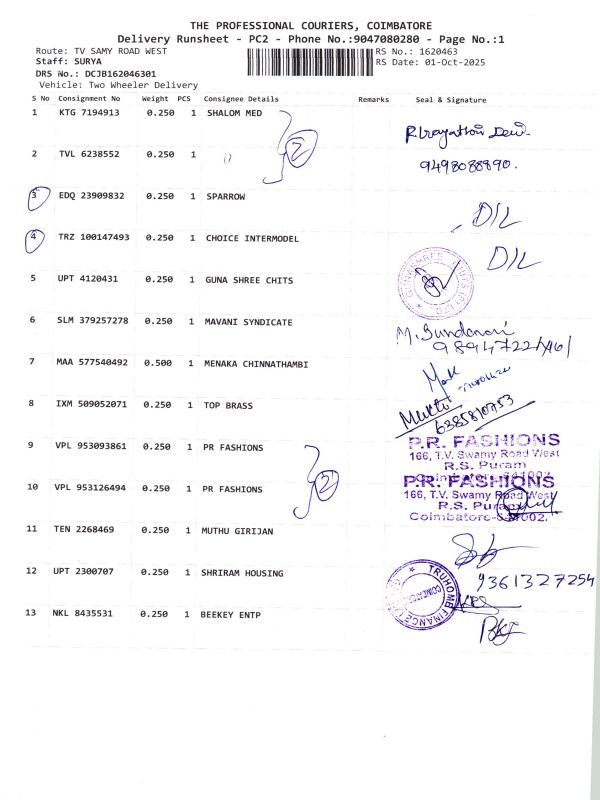 THE PROFESSIONAL COURIERS, COIMBATORE
Delivery Runsheet - PC2 - Phone No.:9047080280 - Page No.:1
Route: TV SAMY ROAD WEST RS No.: 1620463
Staff: SURYA RS Date: 01-Oct-2025
DRS No.: DCJB162046301
Vehicle: Two Wheeler Delivery
S No Consignment No Weight PCS Consignee Details Remarks Seal & Signature
1 KTG 7194913 0.250 1 SHALOM MED
2 TVL 6238552 0.250 1
2
9498088890.
3 EDQ 23909832 0.250 1 SPARROW
D/L
4 TRZ 100147493 0.250 1 CHOICE INTERMODEL
D/L
5 UPT 4120431 0.250 1 GUNA SHREE CHITS
6 SLM 379257278 0.250 1 MAVANI SYNDICATE
M. Sundari
7 MAA 577540492 0.500 1 MENAKA CHINNATHAMBI
8 IXM 509052071 0.250 1 TOP BRASS
Muthu
6385810753
9 VPL 953093861 0.250 1 PR FASHIONS
P.R. FASHIONS
166, T.V. Swamy Road West
R.S. Puram
Coimbatore-641002.
10 VPL 953126494 0.250 1 PR FASHIONS
2
P.R. FASHIONS
166, T.V. Swamy Road West
R.S. Puram
Coimbatore-641002.
11 TEN 2268469 0.250 1 MUTHU GIRIJAN
12 UPT 2300707 0.250 1 SHRIRAM HOUSING
TRUHOME FINANCE
9361327254
13 NKL 8435531 0.250 1 BEEKEY ENTP